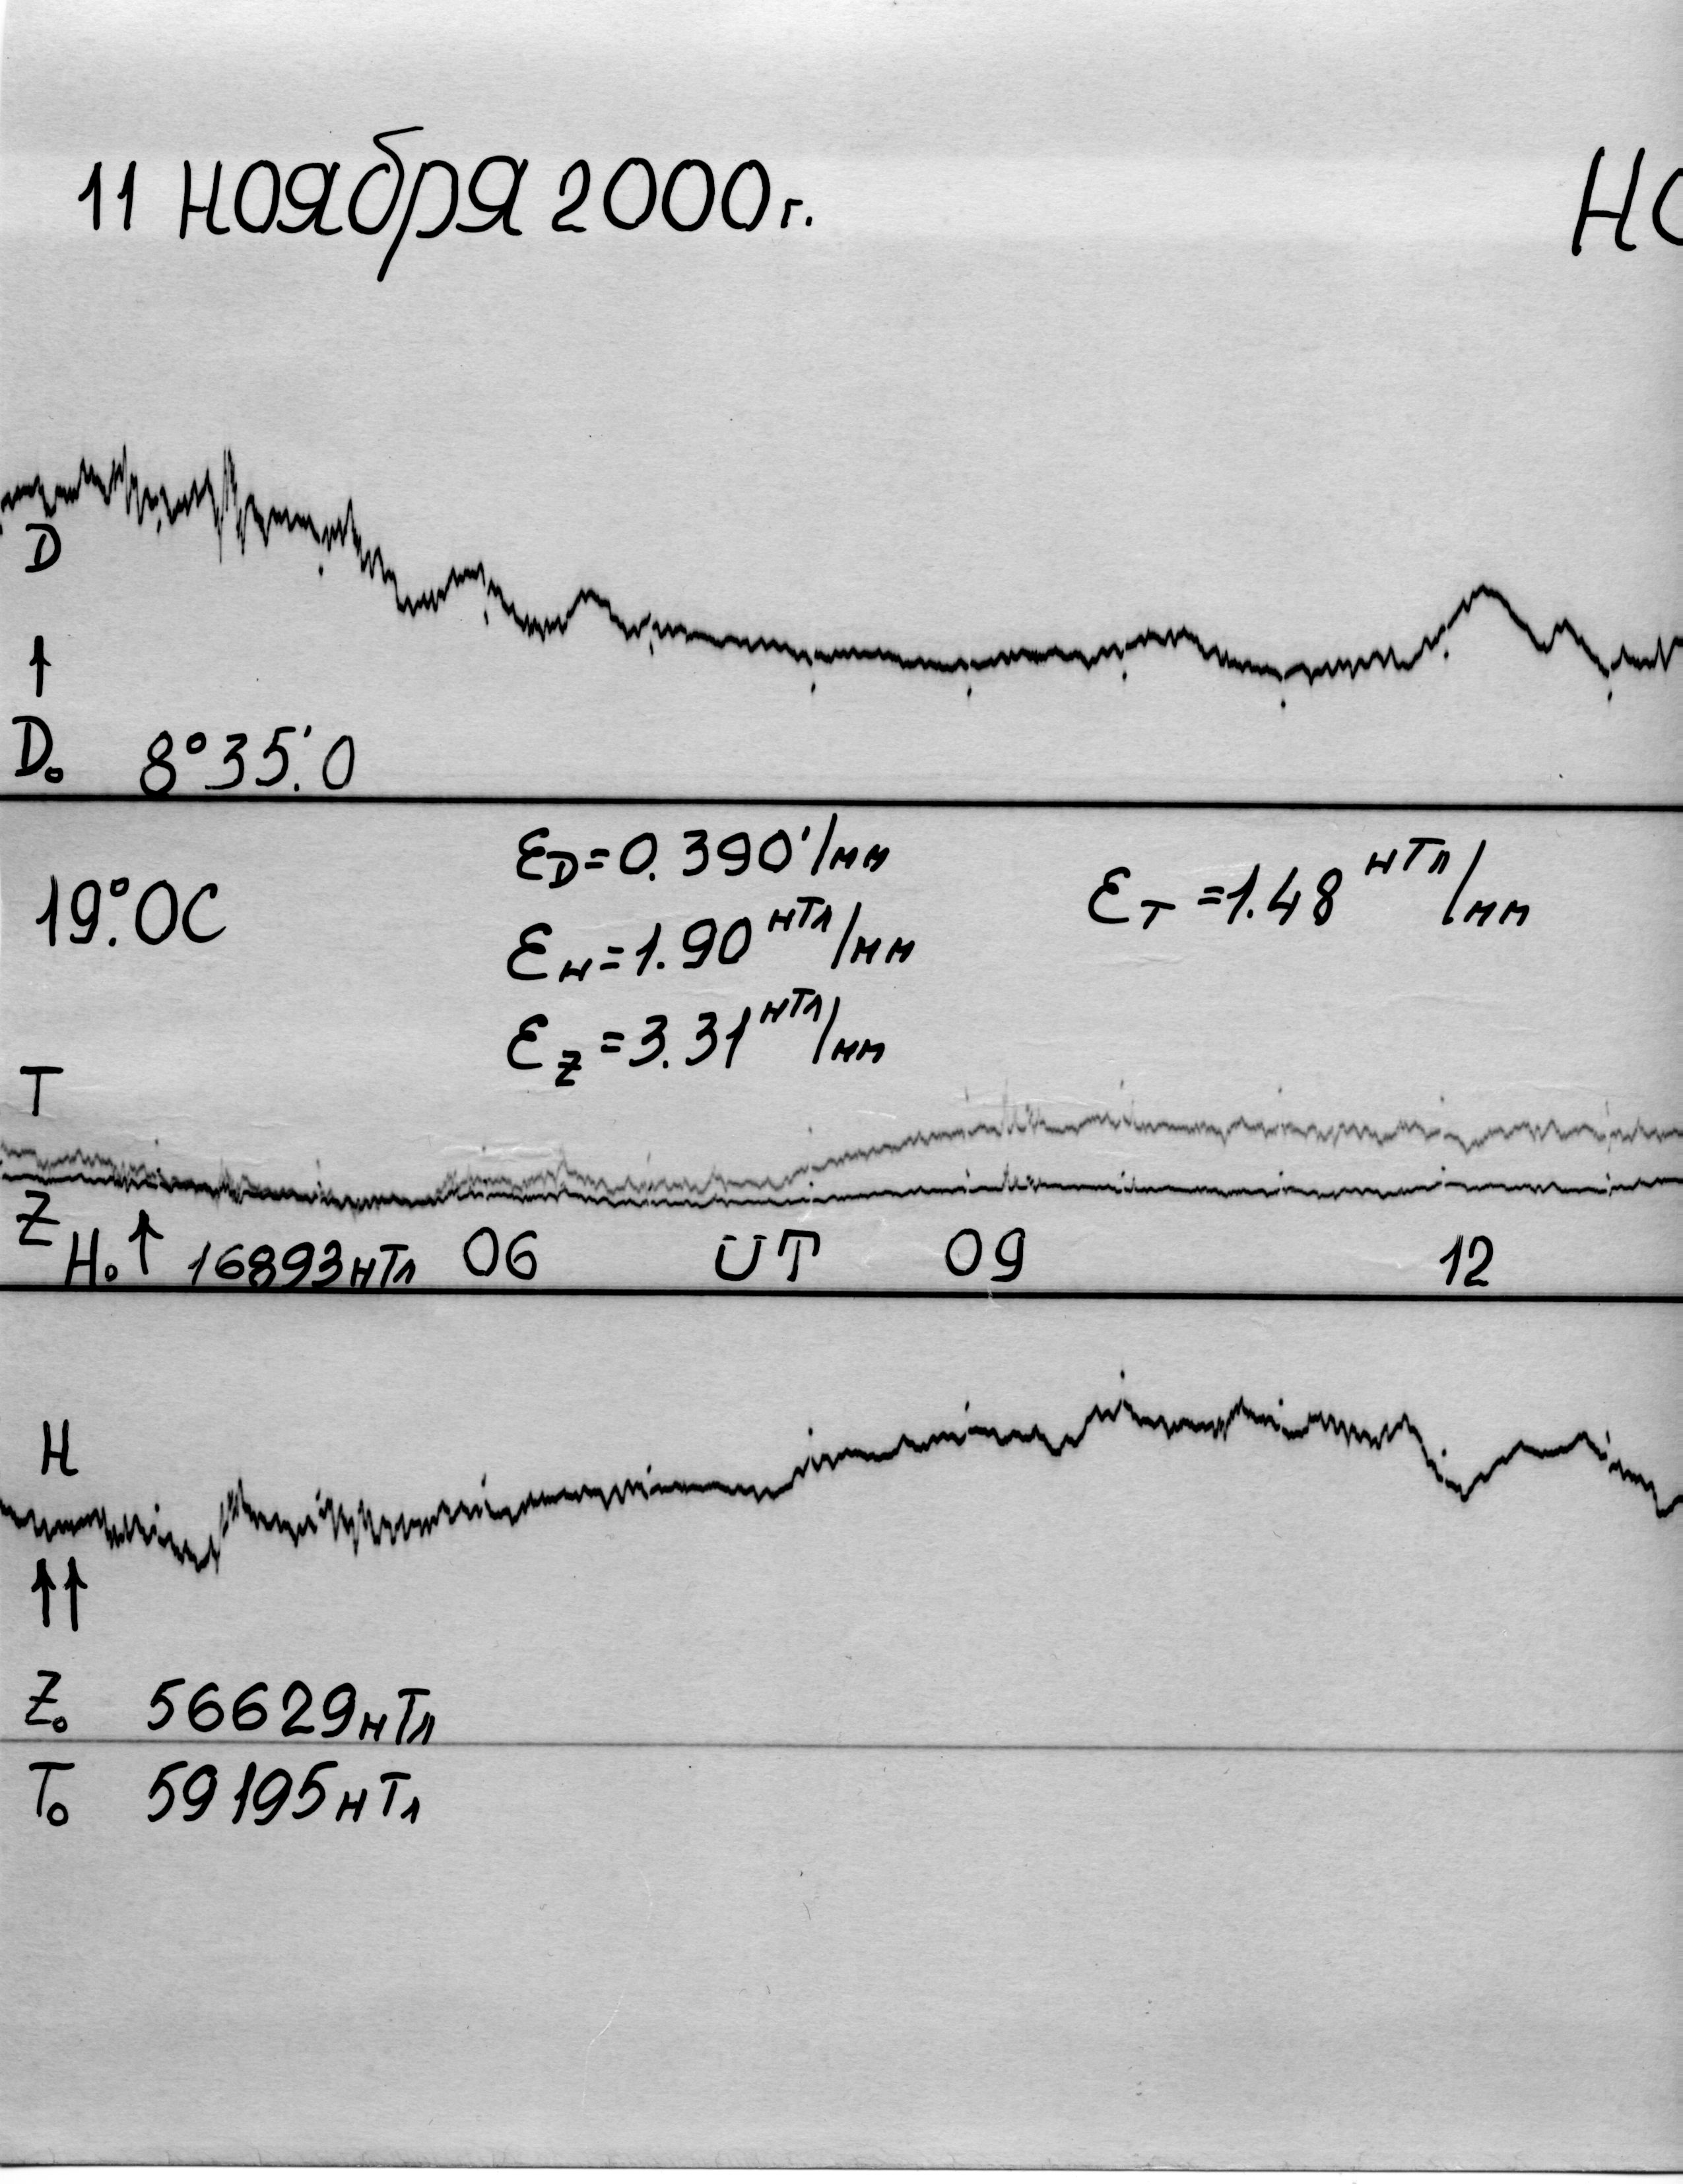 11 ноября 2000г.
НО
D
D₀ 8°35.'0
19.°0С
ƐD=0.390'/мм
ƐH=1.90 нТл/мм
ƐZ=3.31 нТл/мм
ƐT=1.48 нТл/мм
T
Z
H₀↑ 16893нТл 06 UT 09 12
H
Z₀ 56629нТл
T₀ 59195нТл